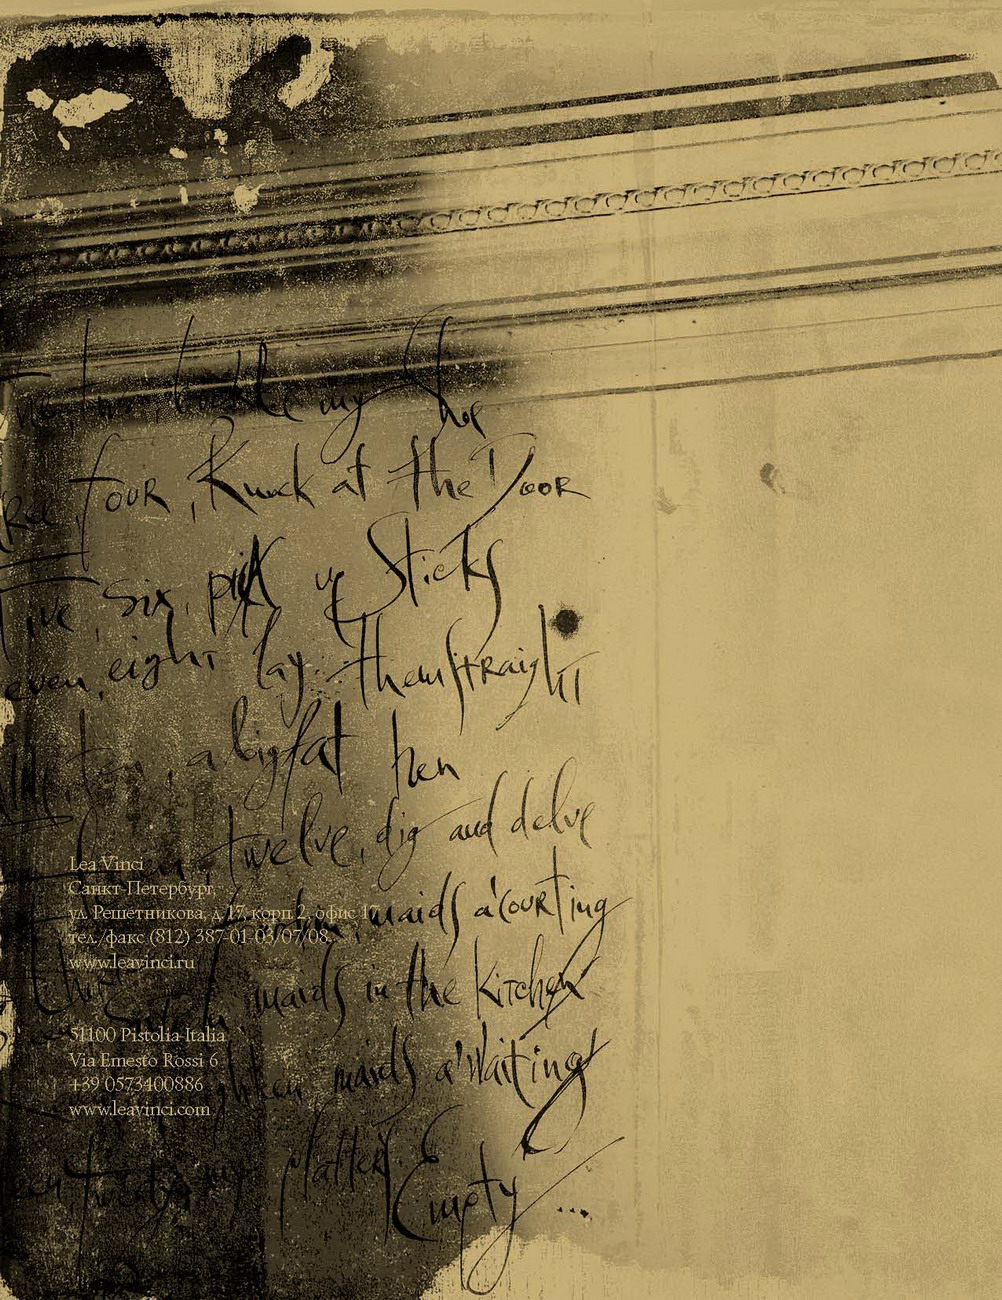 two, buckle my Shoe
four, Knock at the Door
Five, six, pick up Sticks
even, eight lay them straight
ten, a big fat hen
twelve, dig and delve
maids a'courting
maids in the kitchen
maids a'Waiting
twenty, my platter's Empty ...
Lea Vinci
Санкт-Петербург,
ул. Решетникова, д.17, корп.2, офис 17
тел./факс (812) 387-01-03/07/08.
www.leavinci.ru
51100 Pistolia Italia
Via Ernesto Rossi 6
+39 0573400886
www.leavinci.com